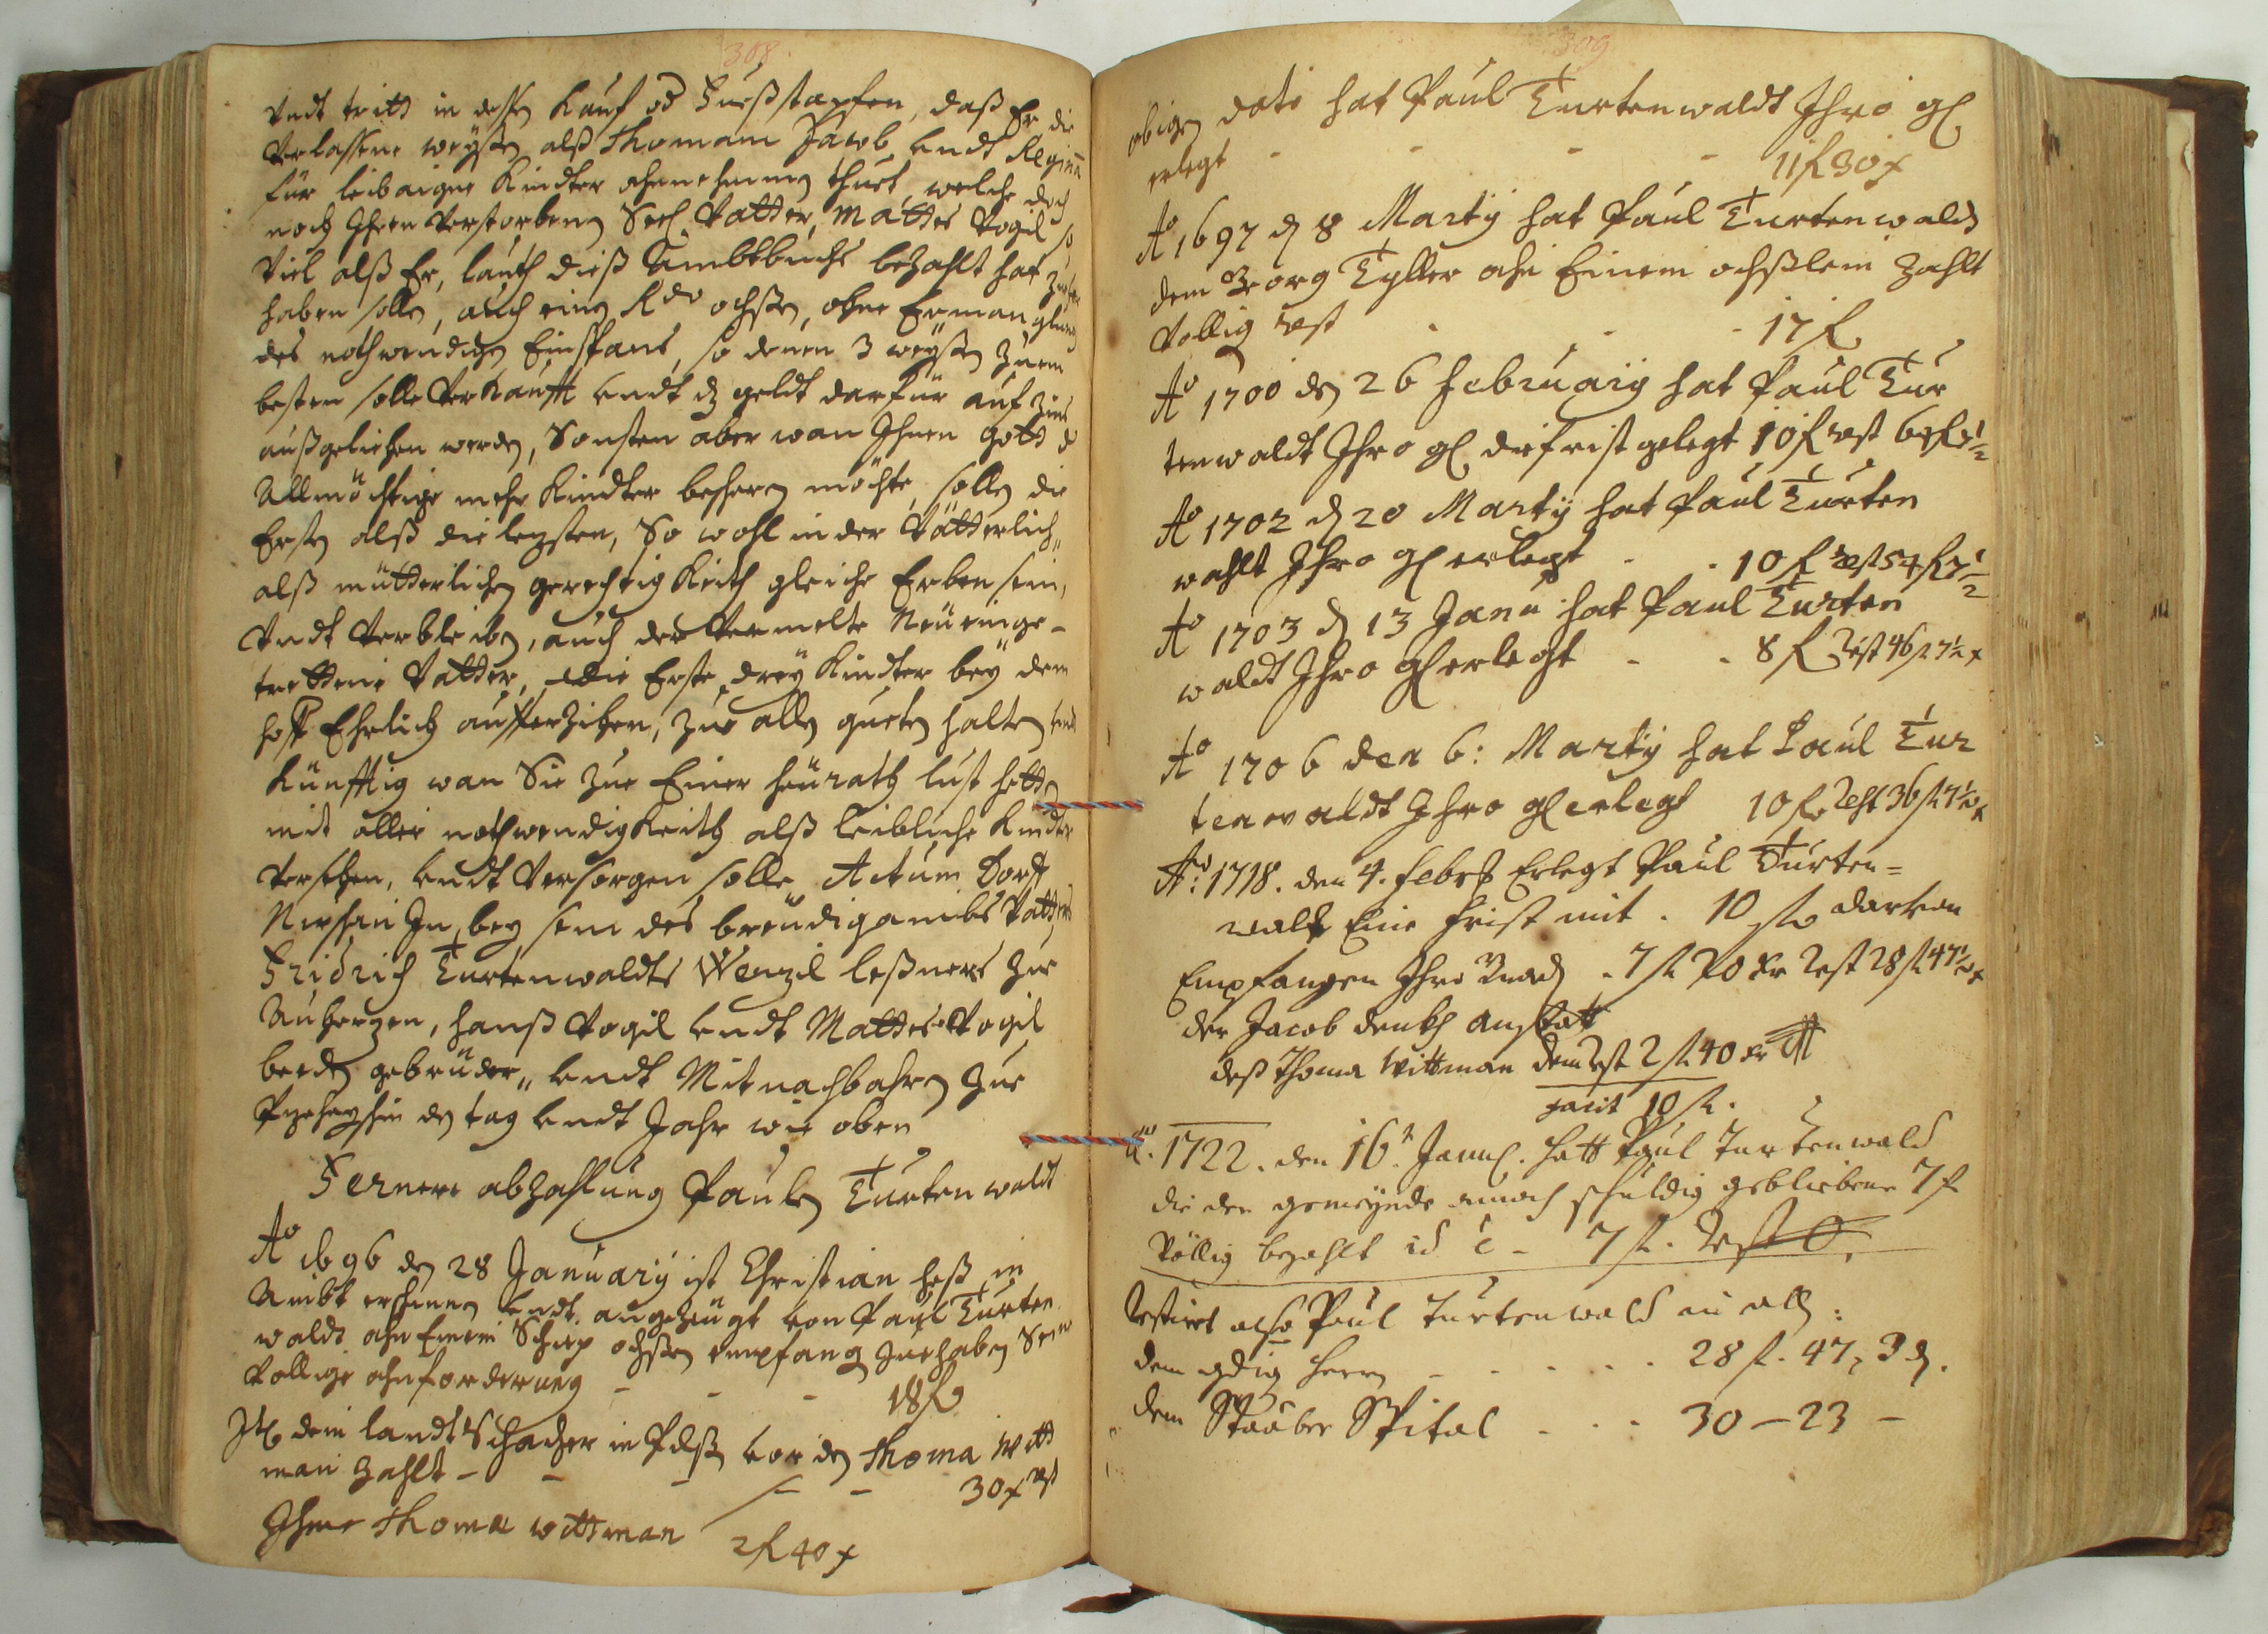 308.
Vndt tritt in deßen Kauf vd Fuesstapfen, daß Er die
Verlaßene weyßen alß Thomam Jacob vndt Regina
für leibaigne Kindter ahnnehmen thuet, welche doch
noch Ihren Verstorbenen Seel. Vatter, Mattes Vogil so
Viel alß Er, lauth dieß Ambtbuchs bezahlt hat
haben solle, auch einen Rdo ochßen, ohne Ermanglung
des nothwendigen Einspans, so denen 3 weyßen zum
besten solle Verkaufft vndt dz geldt darfür auf Zins
außgeliehen werden, Sonsten aber wan Ihnen Gott d
Allmächtige mehr Kindter beschern möchte, sollen die
Ersten alß die lezsten, So wohl in der Vätterlich
alß mütterlichen gerechtigkeith gleiche Erben sein,
Vndt Verbleiben, auch der Vermelte Neüeinge-
trettene Vatter, die Erste drey Kindter bey dem
hoff Ehrlich aufferziehen, zue allen gueten halten vndt
Künfftig wan Sie zue Einer heürath lust hetten
mit aller nothwendigkeith alß leibliche Kindter
Versehen, vndt Versorgen solle Actum Dorff
in bey sein des breüdigambs Vatters
Fridrich Turtenwaldts Wenzil leßners zue
, hanß Vogil vndt Mattes Vogil
beeden gebrüder, vndt Mitnachbahren zue
den tag vndt Jahr wie oben
Fernere abzahlung Paulen Turtenwaldt
Ao 1696 den 28 January ist Christian heß in
Ambt erschinen vndt angezeügt von Paul Turten
waldt ahn Einem ochßen empfangen zue haben Seine
Völlige ahnforderung - - - 18 f
Itl dem landtSchazer in vor den Thoma Witt
man zahlt - - - - 30 x rest
Ihme Thoma wittman 2 f 40 x
309
obigen dato hat Paul Turtenwaldt Ihro gl
erlegt - - - - 11 f 30 x
Ao 1697 d 8 Marty hat Paul Turtenwaldt
dem Georg Tyller ahn Einem ochßlein zahlt
Völlig rest - - - 17 f
Ao 1700 den 26 February hat Paul Tur
tenwaldt Ihro gl die frist gelegt 10 f rest
Ao 1702 d 20 Marty hat Paul Turten
wahlt Ihro gl erlegt - - 10 f rest 54 f 7 1/2
Ao 1703 d 13 Janu hat Paul Turten
waldt Ihro gl erlegt - - 8 f Rest 46 f 7 1/2 x
Ao 1706 den 6: Marty hat Paul Tur
tenwaldt Ihro gl erlegt 10 f Rest 36 f 7 1/2 x
Ao: 1718. den 4. Febr Erlegt Paul Turten=
walt Eine Frist mit . 10 f darvon
Empfangen Ihro Gnad . 7 f 20 kr Rest 28 f 47 1/2 x
der Jacob anstatt
deß Thoma Wittman dem Rest 2 f 40 kr
facit 10 f.
Ao. 1722. den 16t. Janu. hatt Paul Turtenwald
die der gemeynde annoch schuldig gebliebene 7 f
Völlig bezahlt id e - 7 f. Rest 0.
Restiret also Paul Turtenwald in all :
dem gdig herrn - - - - 28 f. 47, 3 d.
dem Stääber Spital - - - 30 - 23 -